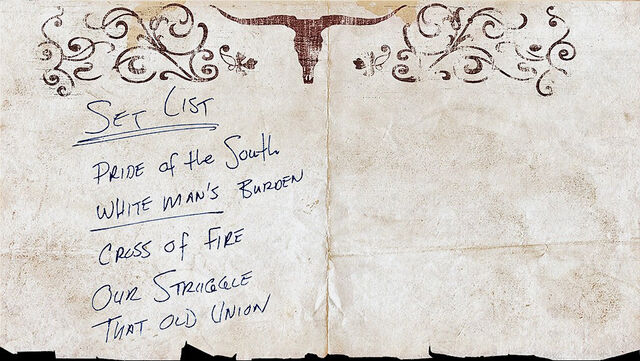 SET LIST
PRIDE of the South
WHITE MAN'S BURDEN
CROSS of FIRE
OUR STRUGGLE
THAT OLD UNION